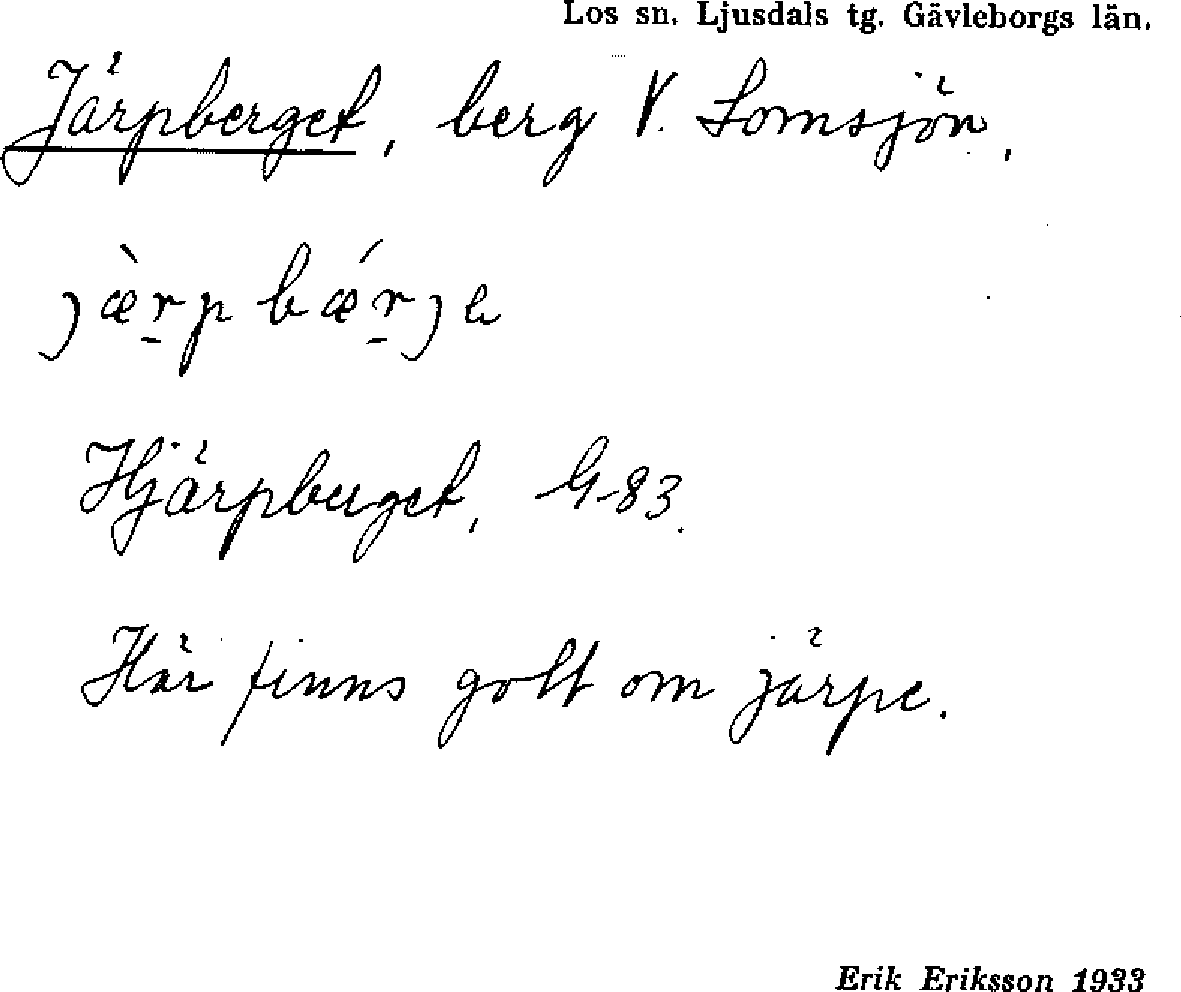 Los sn. Ljusdals tg. Gävleborgs län.
Järpberget, berg V. Lomsjön.
jæ̀r̠pbǽr̠je
Hjärpberget, G-83.
Här finns gott om järpe.
Erik Eriksson 1933